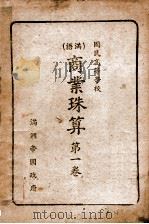 國民高等學校
(滿語)
商業珠算 第一卷
滿洲帝國政府